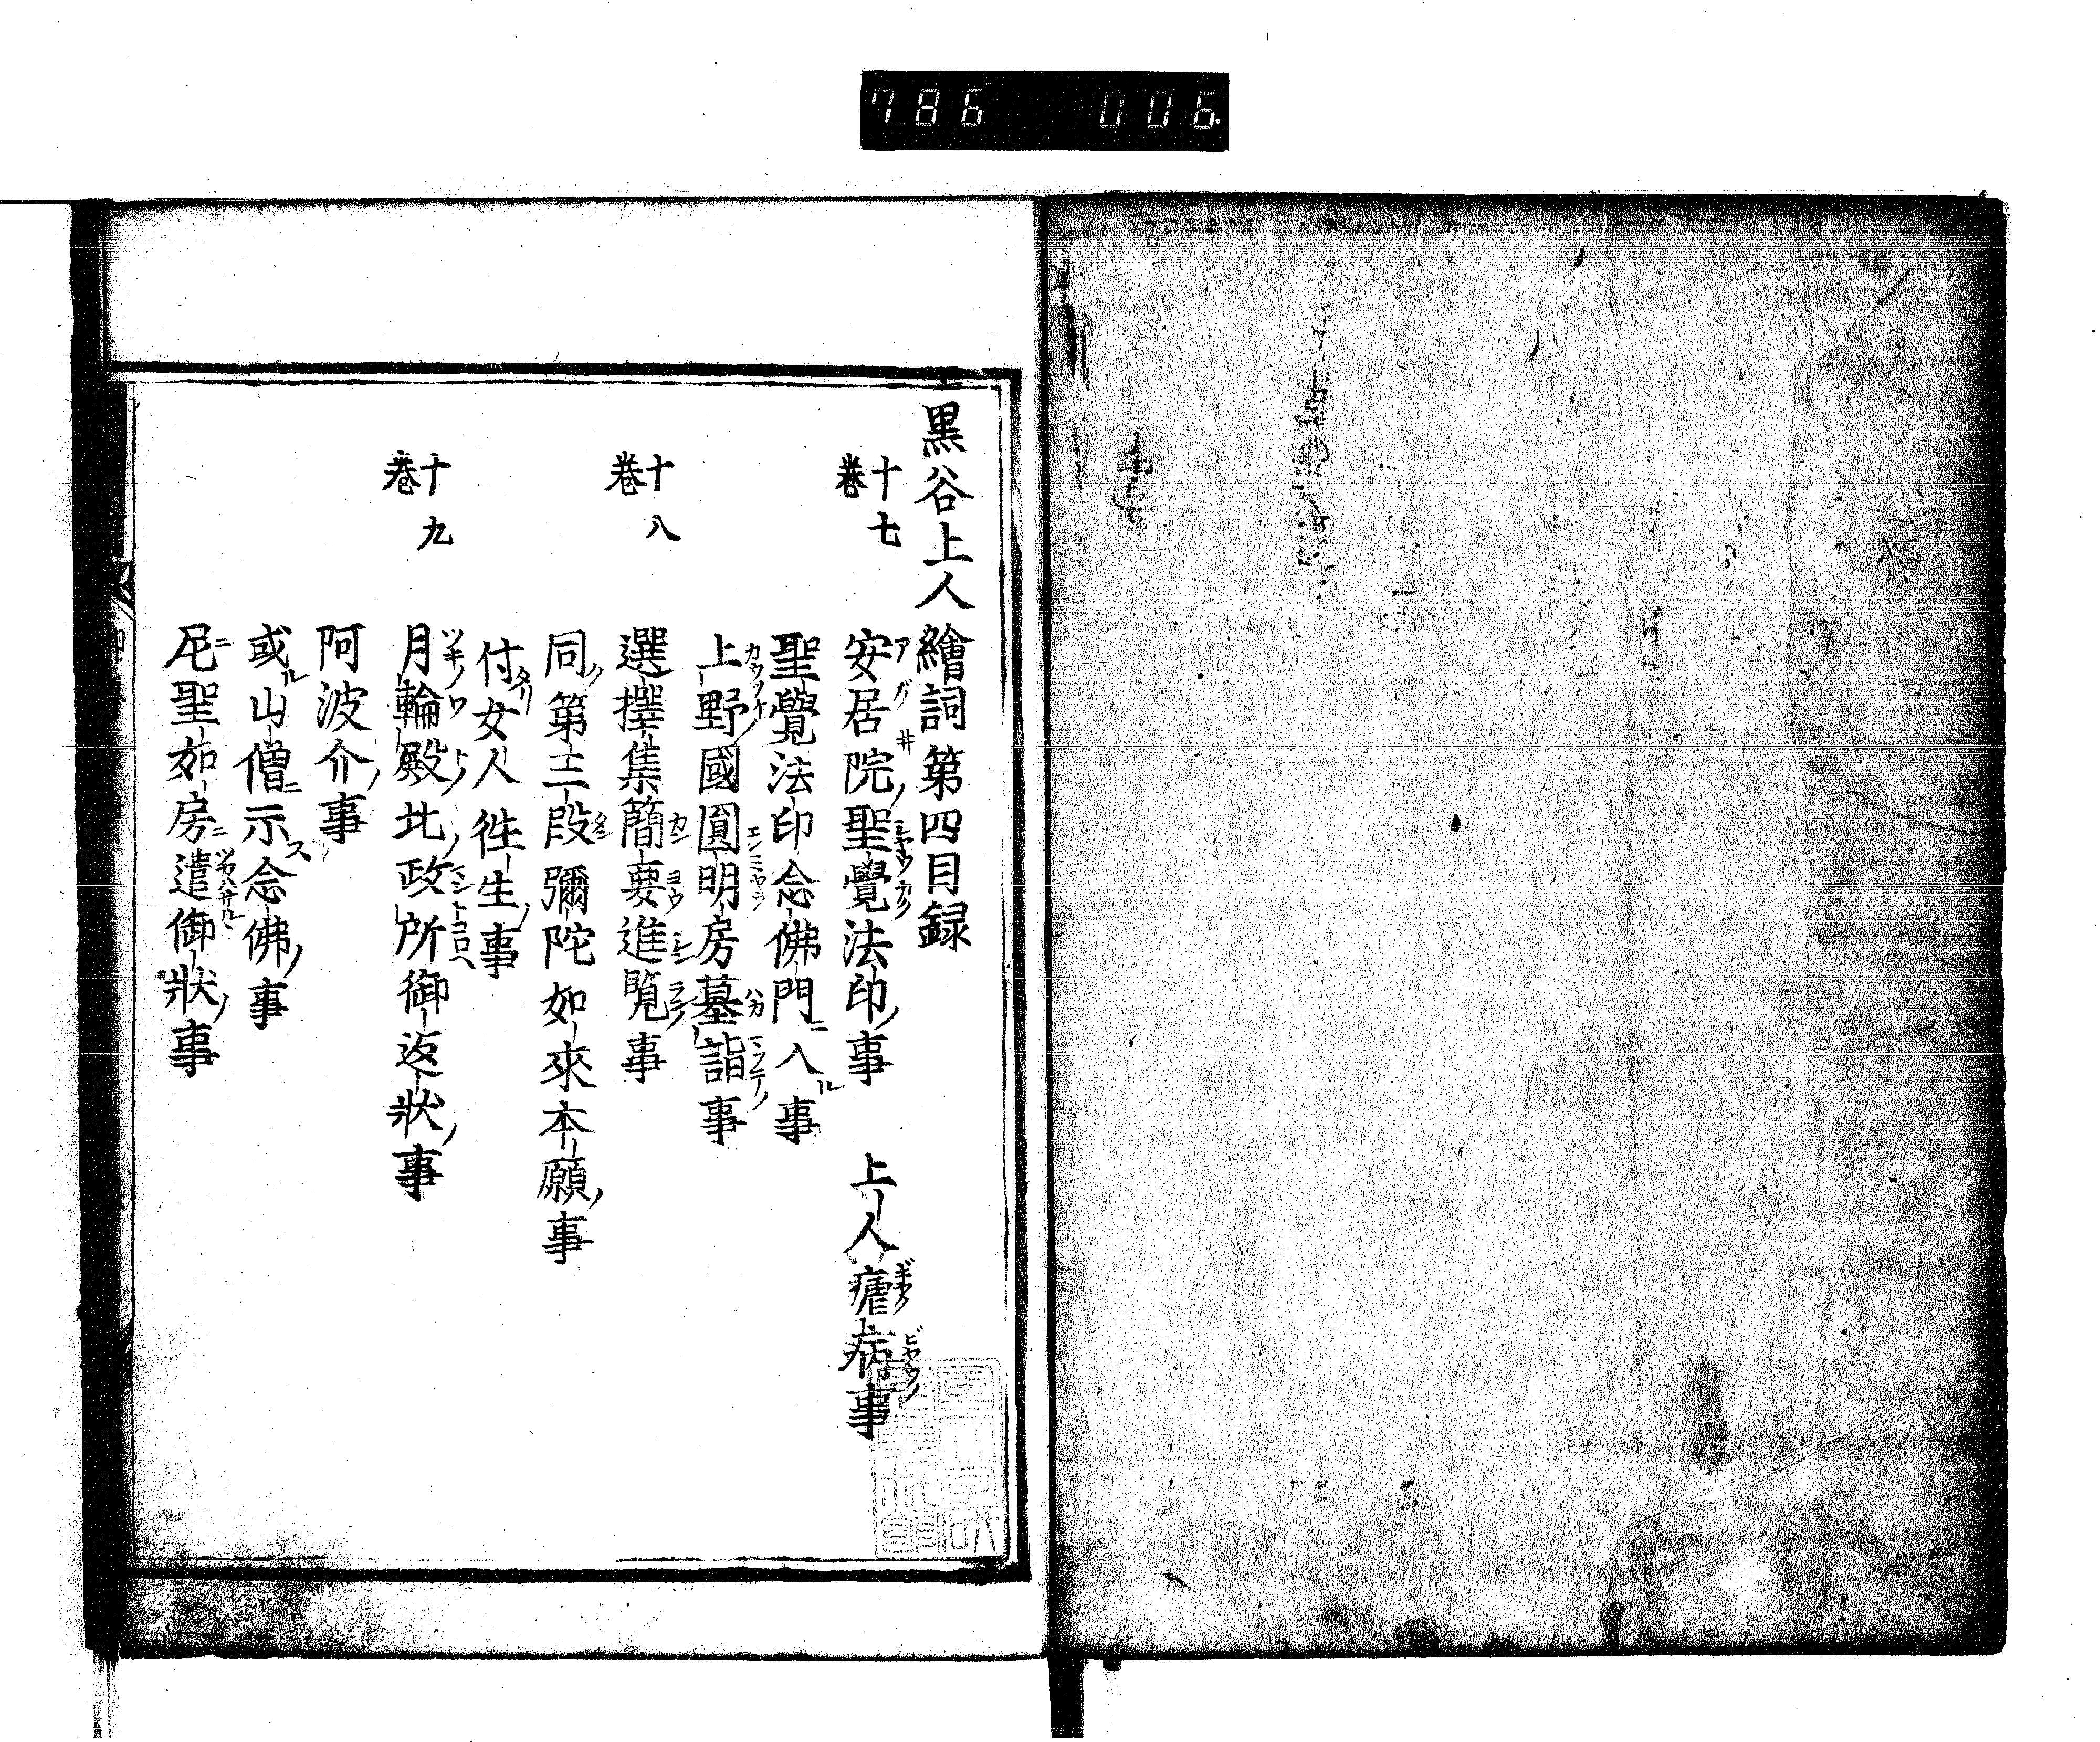 786 006
黒谷上人繪詞第四目録
十七巻
安居院ノ聖覺法印ノ事 上人瘧病ノ事
聖覺法印念佛門ニ入ル事
上野國圓明房墓詣ノ事
十八巻
選擇集簡要進覧ノ事
同ノ第三段彌陀如來本願ノ事
付タリ女人徃生ノ事
十九巻
月輪殿ノ北ノ政所御返状ノ事
阿波介ノ事
或ル山僧ニ示ス念佛ノ事
尼聖如房ニ遣御状ノ事